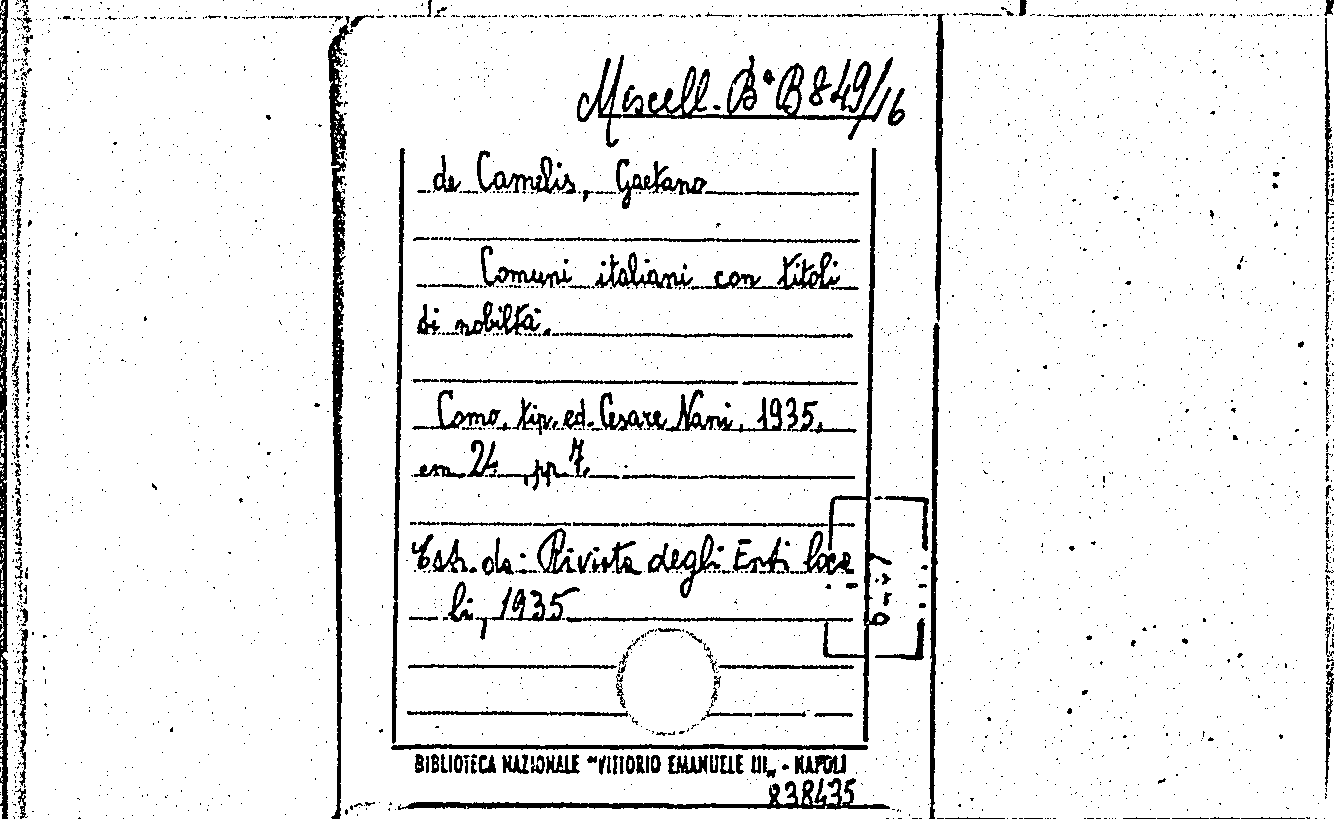 Miscell. Bª B 849/16
de Camelis, Gaetano
Comuni italiani con titoli
di nobiltà.
Como, tip. ed. Cesare Nani, 1935.
cm 24, pp 7.
Estr. da: Rivista degli Enti loca
li, 1935
BIBLIOTECA NAZIONALE "VITTORIO EMANUELE III„ - NAPOLI
838435